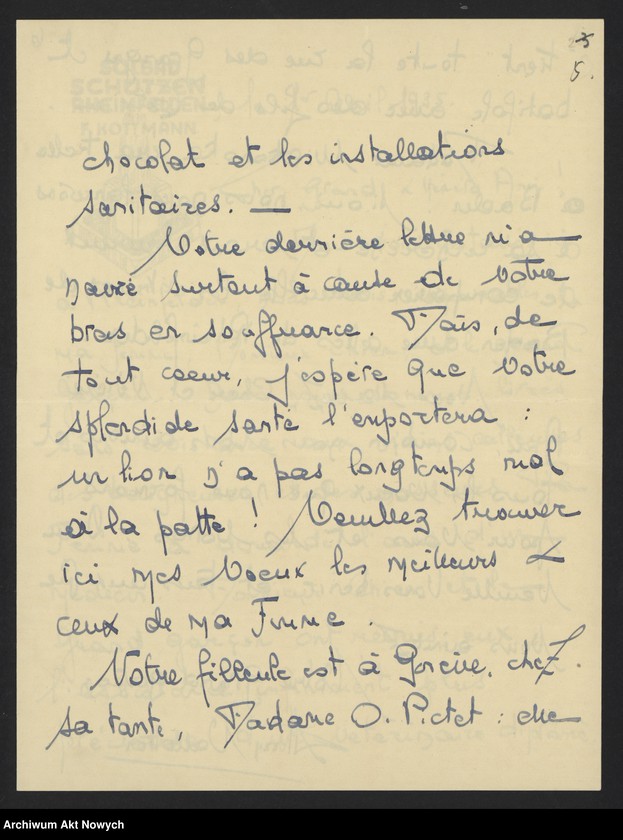 5
5.
chocolat et les installations
sanitaires. —
Votre dernière lettre m'a
navré surtout à cause de votre
bras en souffrance. Mais, de
tout coeur, j'espère que votre
splendide santé l'emportera :
un lion n'a pas longtemps mal
à la patte ! Veuillez trouver
ici mes voeux les meilleurs &
ceux de ma Femme.
Votre filleule est à Genève, chez
sa tante, Madame O. Pictet : elle
Archiwum Akt Nowych